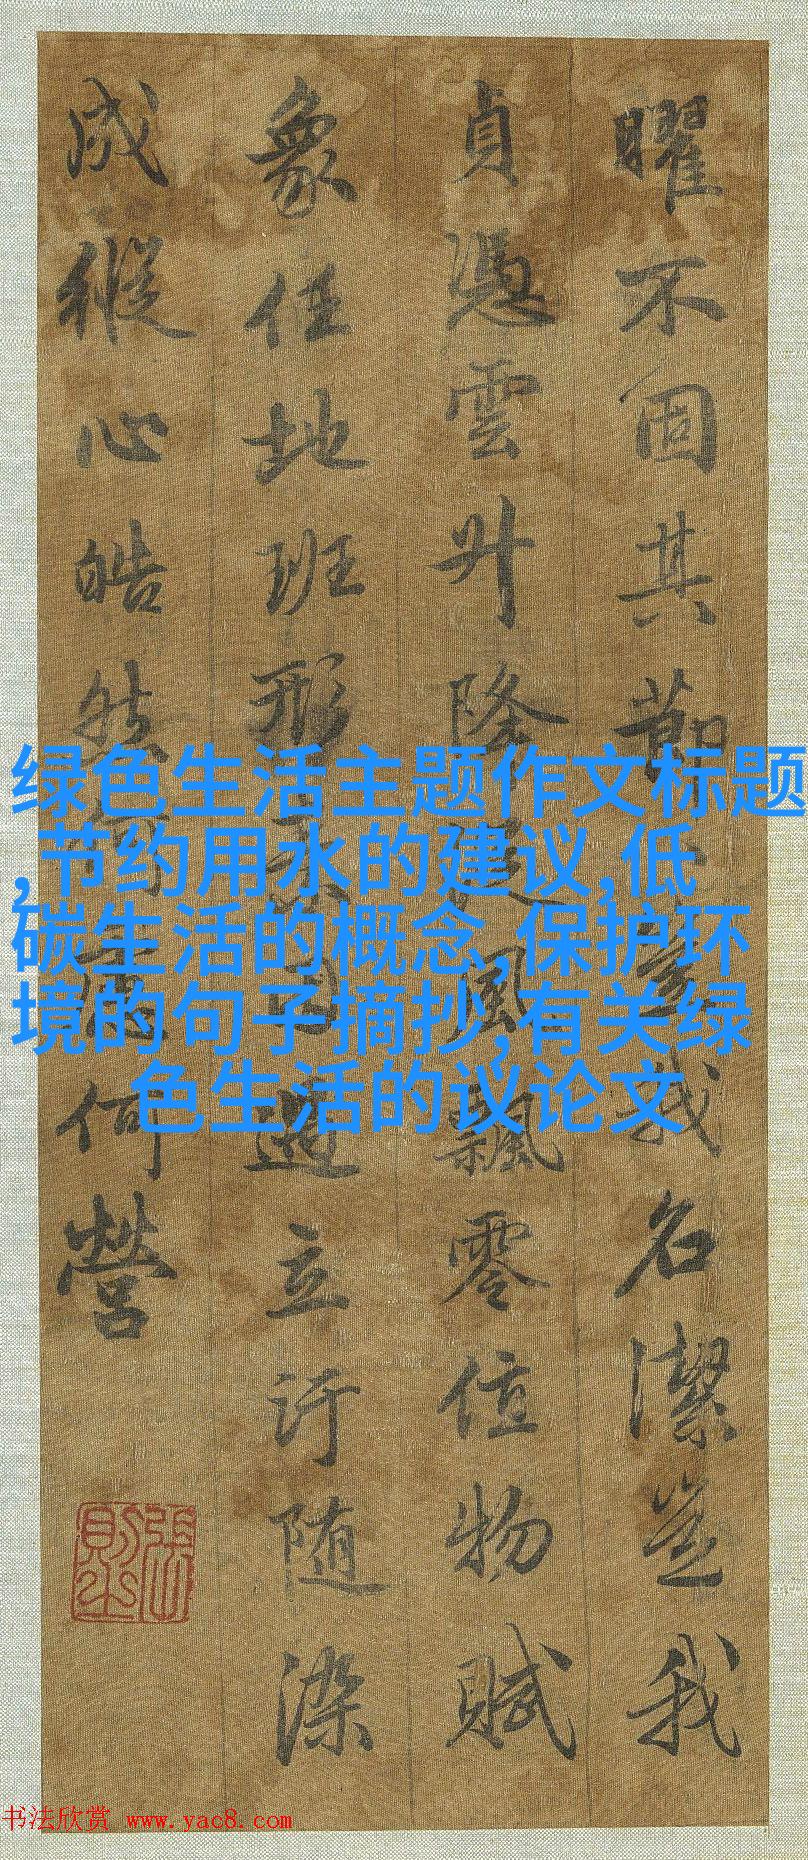 曜不固其節豈我名潔豈我
貞憑雲升降從風飄零值物賦
象任地班形素因遇立汙随染
成縱心皓然何慮何營
張則之
绿色生活主题作文标题
,节约用水的建议,低
碳生活的概念,保护环
境的句子摘抄,有关绿
色生活的议论文
书法欣赏 www.yac8.com